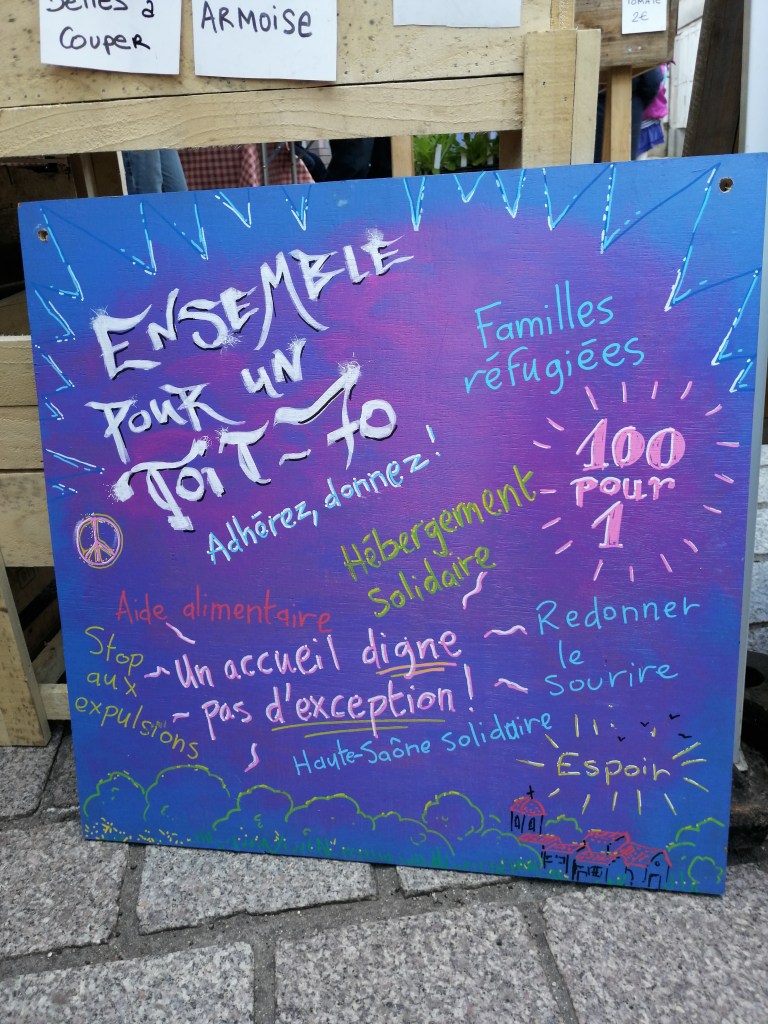 Belles à
Couper
ARMOISE
TOMATE
2€
ENSEMBLE
POUR UN
TOIT-70
Adhérez, donnez!
Familles
réfugiées
100
pour
1
Hébergement
Solidaire
Aide alimentaire
Stop
aux
expulsions
Un accueil digne
pas d'exception!
Redonner
le
sourire
Haute-Saône solidaire
Espoir